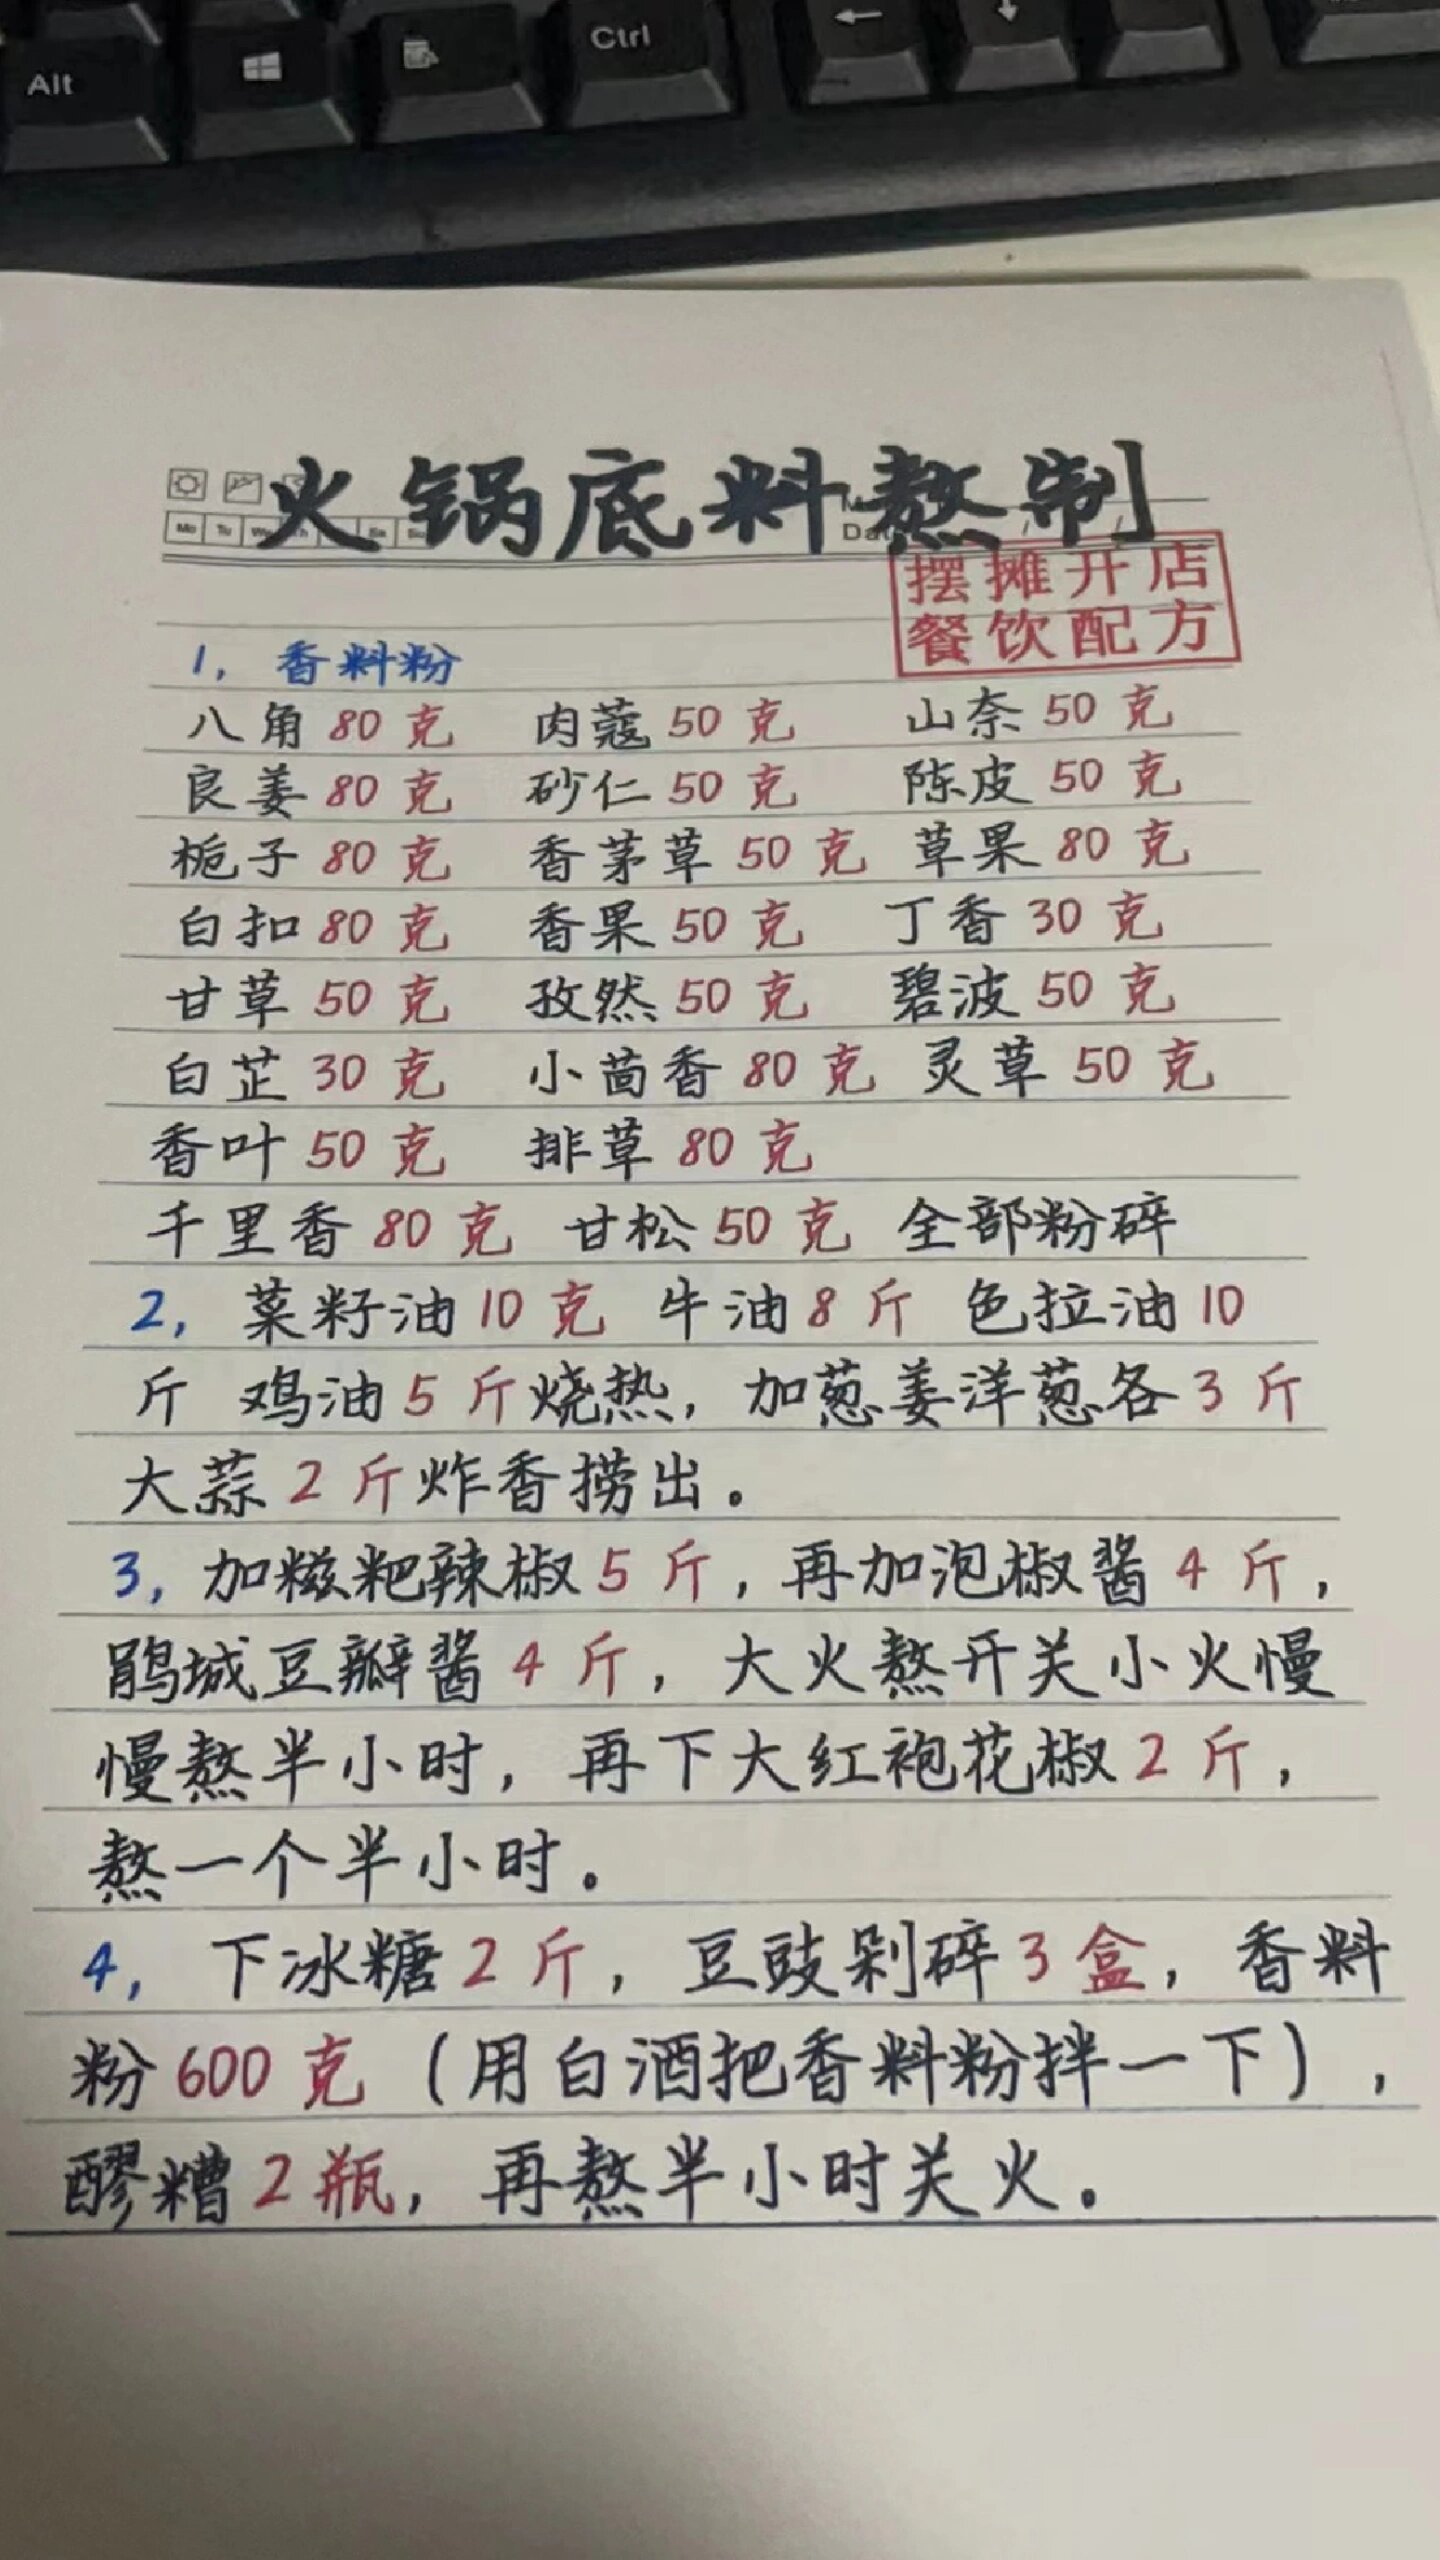 Alt
Ctrl
火锅底料熬制
Mo Tu
摆摊开店
餐饮配方
1, 香料粉
八角 80 克 肉蔻 50 克 山奈 50 克
良姜 80 克 砂仁 50 克 陈皮 50 克
栀子 80 克 香茅草 50 克 草果 80 克
白扣 80 克 香果 50 克 丁香 30 克
甘草 50 克 孜然 50 克 碧波 50 克
白芷 30 克 小茴香 80 克 灵草 50 克
香叶 50 克 排草 80 克
千里香 80 克 甘松 50 克 全部粉碎
2, 菜籽油 10 克 牛油 8 斤 色拉油 10
斤 鸡油 5 斤烧热, 加葱姜洋葱各 3 斤
大蒜 2 斤炸香捞出。
3, 加糍粑辣椒 5 斤, 再加泡椒酱 4 斤,
鹃城豆瓣酱 4 斤, 大火熬开关小火慢
慢熬半小时, 再下大红袍花椒 2 斤,
熬一个半小时。
4, 下冰糖 2 斤, 豆豉剁碎 3 盒, 香料
粉 600 克 (用白酒把香料粉拌一下),
醪糟 2 瓶, 再熬半小时关火。